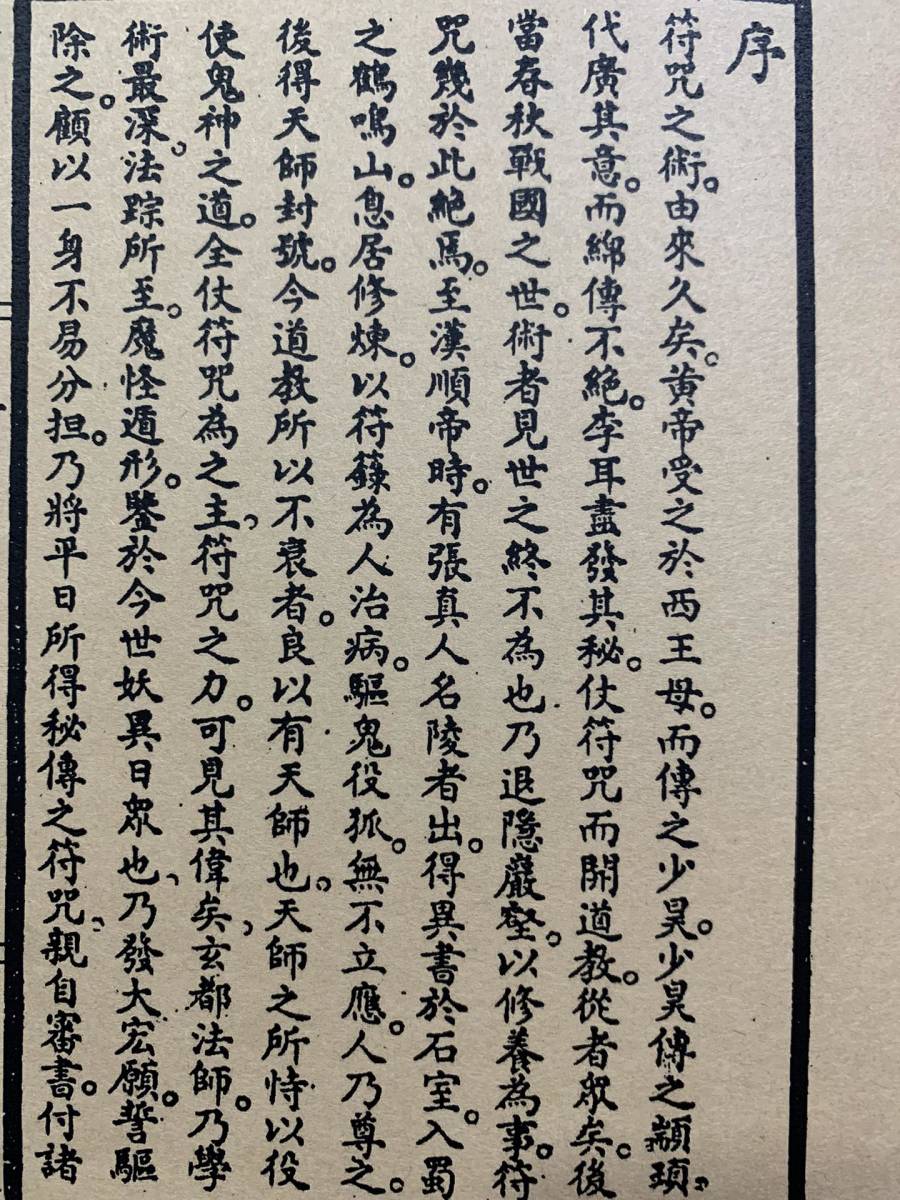 序
符咒之術。由來久矣。黄帝受之於西王母。而傳之少昊。少昊傳之顓頊、
代廣其意。而綿傳不絶。李耳盡發其秘。仗符咒而開道教。從者眾矣。後
當春秋戰國之世。術者見世之終不為也乃退隱巖壑。以修養為事。符
咒幾於此絶焉。至漢順帝時。有張真人名陵者出。得異書於石室。入蜀
之鶴鳴山。息居修煉。以符籙為人治病。驅鬼役狐。無不立應。人乃尊之。
後得天師封號。今道教所以不衰者。良以有天師也。天師之所恃以役
使鬼神之道。全仗符咒為之主、符咒之力。可見其偉矣、玄都法師。乃學
術最深、法踪所至。魔怪遁形。鑒於今世妖異日眾也、乃發大宏願。誓驅
除之。顧以一身不易分担。乃將平日所得秘傳之符咒、親自審書。付諸